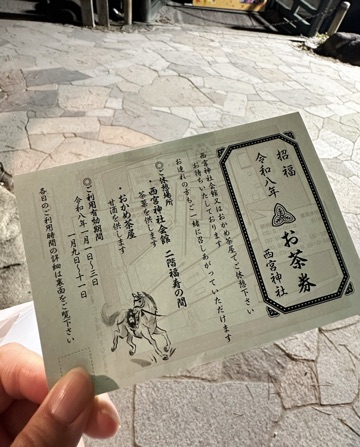 招福
令和八年
お茶券
西宮神社
西宮神社会館又はおかめ茶屋でご休憩下さい
お待ちいたしております
お連れの方もご一緒に召しあがっていただけます
◎ご休憩場所
・西宮神社会館 二階福寿の間
茶菓を供します
・おかめ茶屋
甘酒を供します
◎ご利用有効期間
令和八年一月一日〜三日
一月九日〜十一日
各日のご利用時間の詳細は裏面をご覧下さい